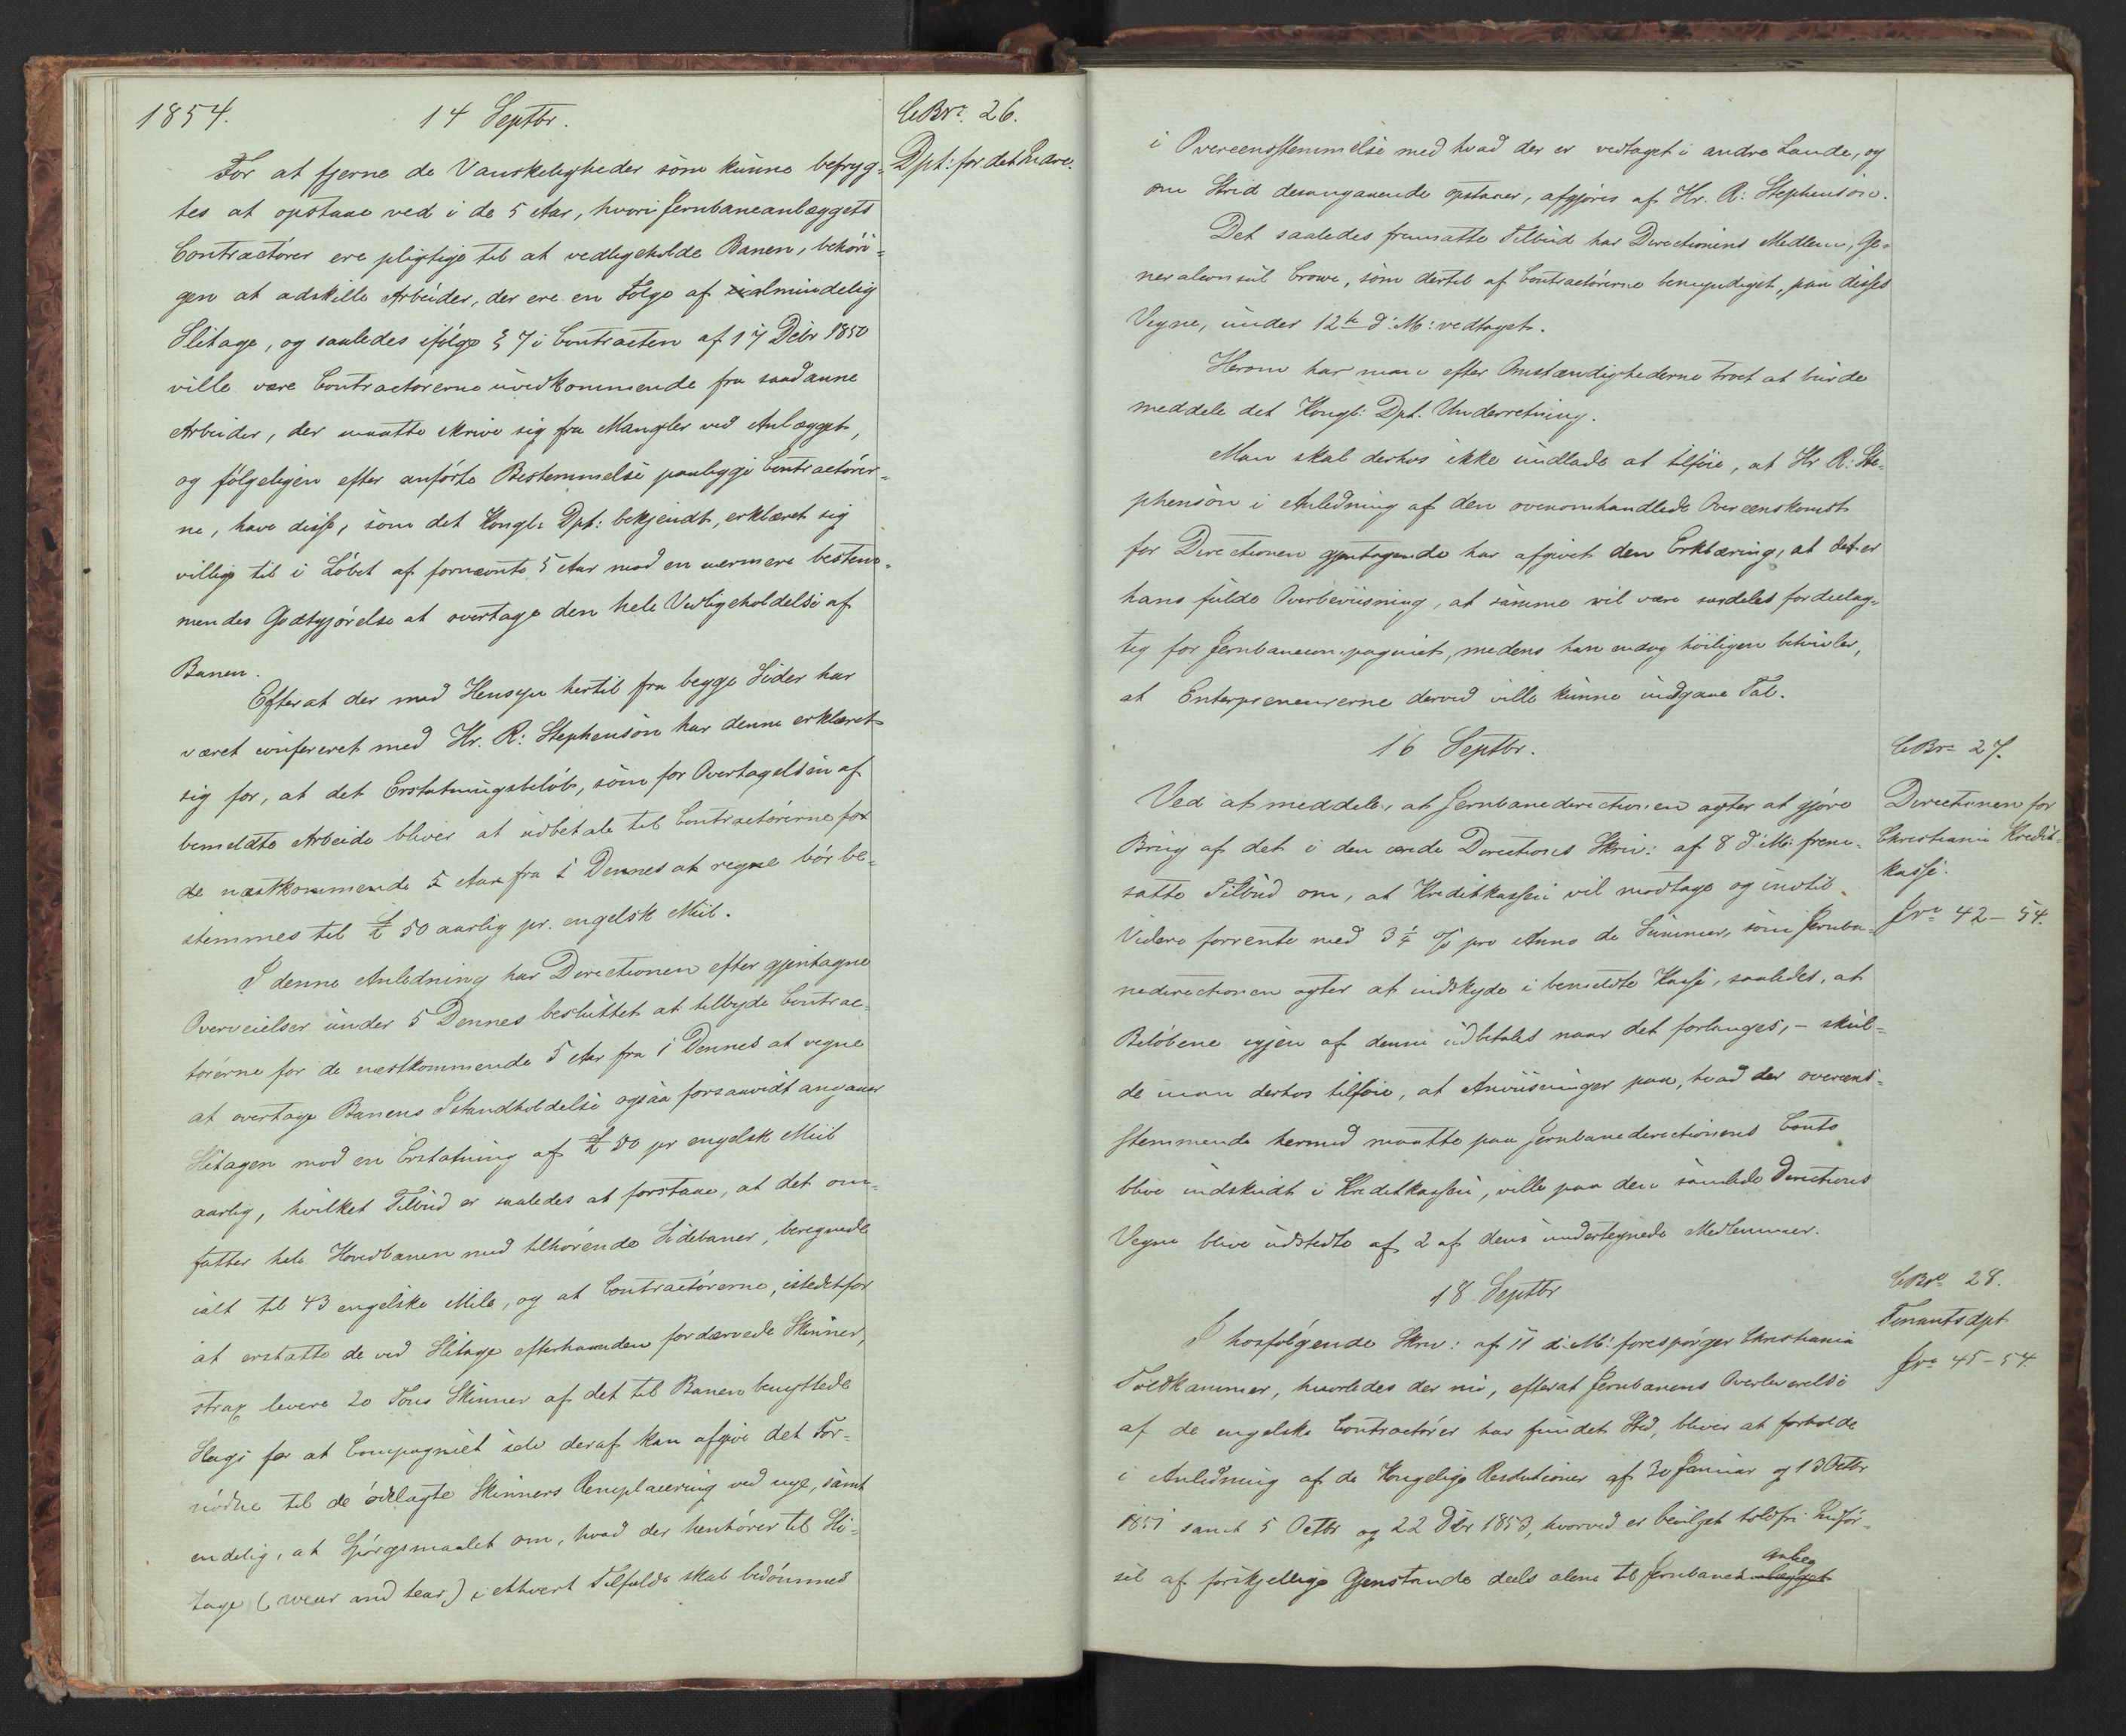 1854.
14 Septbr.
CBNr. 26.
Dpt: for det Indre.
For at fjerne de Vanskeligheder som kunne befryg-
tes at opstaae ved i de 5 Aar, hvori Jernbaneanlæggets
Contractörer ere pligtige til at vedligeholde Banen, behöri-
gen at adskille Arbeider, der ere en Fölge af almindelig
Slitage, og saaledes ifölge § 7 i Contracten af 17 Debr 1850
ville være Contractörerne uvedkommende fra saadanne
Arbeider, der maatte skrive sig fra Mangler ved Anlægget,
og fölgeligen efter anförte Bestemmelse paaligge Contractörer-
ne, have disse, som det Kongl: Dpt: bekjendt, erklæret sig
villige til i Löbet af fornævnte 5 Aar mod en nærmere bestem-
mendes Godtgjörelse at overtage den hele Vedligeholdelse af
Banen.
Efterat der med Hensyn hertil fra begge Sider har
været confereret med Hr. R: Stephenson har denne erklæret
sig for, at det Erstatningsbelöb, som for Overtagelsen af
bemeldte Arbeide bliver at udbetale til Contractörerne for
de næstkommende 5 Aar fra 1 Dennes at regne bör be-
stemmes til £ 50 aarlig pr. engelsk Miil.
I denne Anledning har Directionen efter gjentagne
Overveielser under 5 Dennes besluttet at tilbyde Contrac-
törerne for de næstkommende 5 Aar fra 1 Dennes at regne
at overtage Banens Istandholdelse ogsaa forsaavidt angaaer
Slitagen mod en Erstatning af £ 50 pr engelsk Miil
aarlig, hvilket Tilbud er saaledes at forstaae, at det om-
fatter hele Hovedbanen med tilhörende Sidebaner, beregnede
ialt til 43 engelske Mile, og at Contractörerne, istedetfor
at erstatte de ved Slitage efterhaanden fordærvede Skinner,
strax levere 20 Tons Skinner af det til Banen benyttede
Slags for at Compagniet selv deraf kan afgive det For-
nödne til de ödelagte Skinners Remplacering ved nye, samt
endelig, at Spörgsmaalet om, hvad der henhörer til Sli-
tage (wear and tear) i ethvert Tilfælde skal bedömmes
i Overeensstemmelse med hvad der er vedtaget i andre Lande, og
om Strid desangaaende opstaaer, afgjöres af Hr. R: Stephenson.
Det saaledes fremsatte Tilbud har Directionens Medlem, Ge-
neralconsul Crowe, som dertil af Contractörerne bemyndiget, paa disses
Vegne, under 12te d: M: vedtaget.
Herom har man efter Omstændighederne troet at burde
meddele det Kongl: Dpt. Underretning.
Man skal derhos ikke undlade at tilföie, at Hr R: Ste-
phenson i Anledning af den ovenomhandlede Overeenskomst
for Directionen gjentagende har afgivet den Erklæring, at det er
hans fulde Overbeviisning, at samme vil være særdeles fordeelag-
tig for Jernbanecompagniet, medens han endog höiligen betvivler,
at Enterpreneurerne derved ville kunne undgaae Tab.
16 Septbr.
CBNr 27.
Directionen for
Christiania Kredit-
kasse.
JNr 42-54.
Ved at meddele, at Jernbanedirectionen agter at gjöre
Brug af det i den ærede Directions Skriv: af 8 d: M: frem-
satte Tilbud om, at Kreditkassen vil modtage og indtil
Videre forrente med 3 1/4 % pro Anno de Summer, som Jernba-
nedirectionen agter at indskyde i bemeldte Kasse, saaledes, at
Belöbene igjen af denne udbetales naar det forlanges, - skul-
de man derhos tilföie, at Anviisninger paa, hvad der overens-
stemmende hermed maatte paa Jernbanedirectionens Conto
blive indskudt i Kreditkassen, ville paa den samlede Directions
Vegne blive udstedte af 2 af dens undertegnede Medlemmer.
18 Septbr
CBNr 28.
Finantsdpt
JNr 45-54.
I hosfölgende Skriv: af 11 d: M: forespörger Christiania
Toldkammer, hvorledes der nu, efterat Jernbanens Overleverelse
af de engelske Contractörer har fundet Sted, bliver at forholde
i Anledning af de Kongelige Resolutioner af 30 Januar og 13 Octbr
1851 samt 5 Octbr og 22 Dbr 1853, hvorved er bevilget toldfri Indför-
sel af forskjellige Gjenstande deels alene til Jernbanens Anlæg